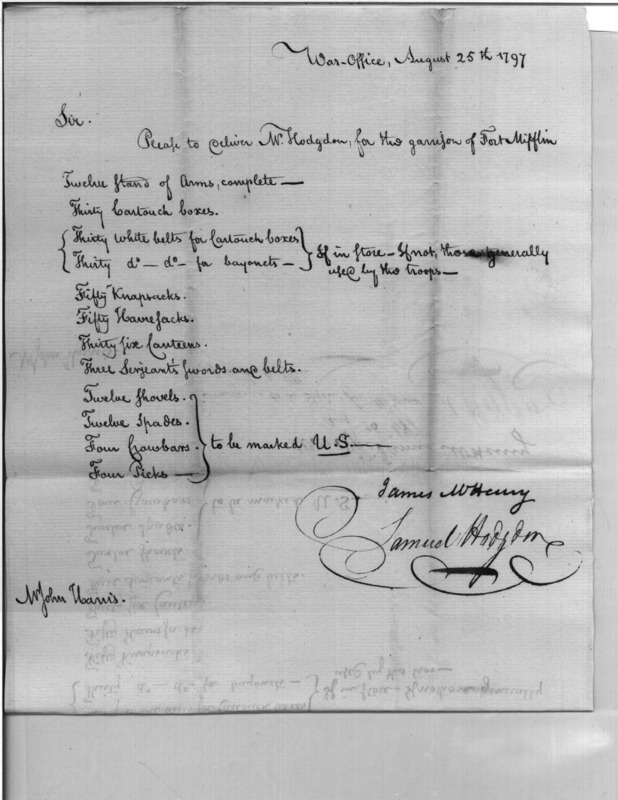 War-Office, August 25th 1797
Sir.
Please to deliver Mr. Hodgdon, for the garrison of Fort Mifflin
Twelve stand of Arms, complete —
Thirty Cartouch boxes.
Thirty white belts for Cartouch boxes
Thirty do — do — for bayonets —
If in store — If not, those generally
used by the troops —
Fifty Knapsacks.
Fifty Haversacks.
Thirty six Canteens.
Three Serjeant's swords and belts.
Twelve shovels.
Twelve spades.
Four Crowbars.
Four Picks —
to be marked U.S. —
James McHenry
Samuel Hodgdon
Mr John Harris.